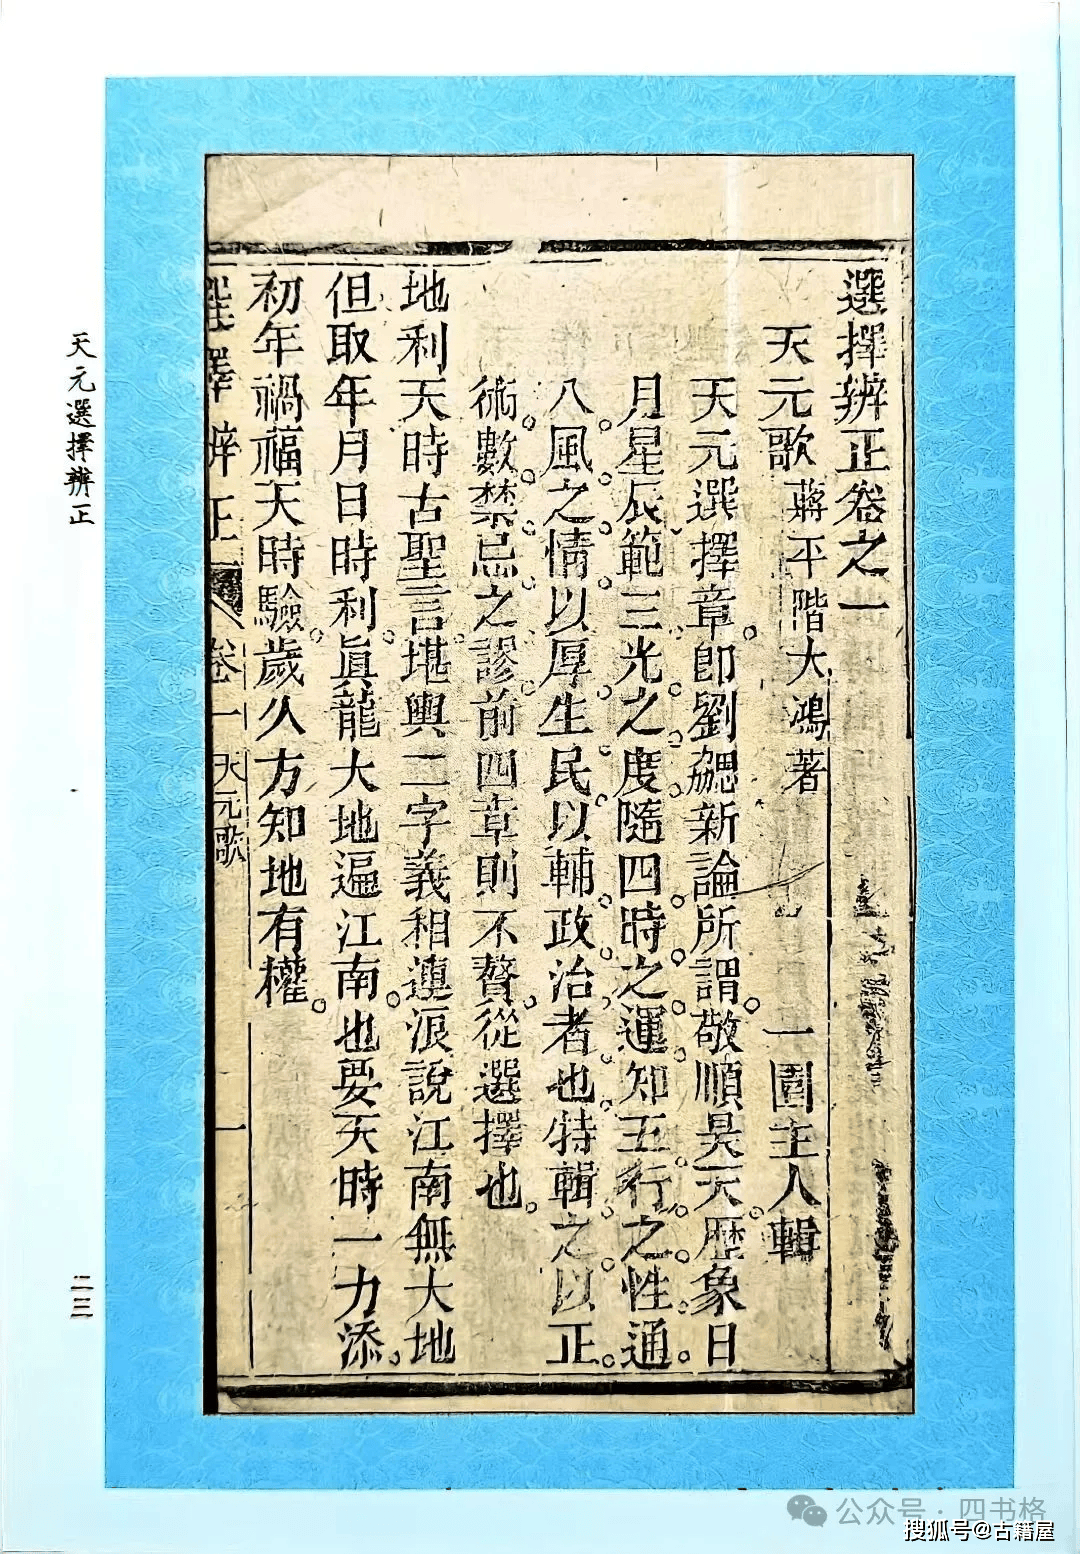 選擇辨正卷之一
天元歌 蔣平階大鴻著 一園主人輯
天元選擇章即劉勰新論所謂敬順昊天歷象日
月星辰範三光之度隨四時之運知五行之性通
八風之情以厚生民以輔政治者也特輯之以正
術數禁忌之謬前四章則不贅從選擇也
地利天時古聖言堪輿二字義相連浪說江南無大地
但取年月日時利眞龍大地遍江南也要天時一力添
初年禍福天時驗歲久方知地有權
選擇辨正 卷一 天元歌 一
天元選擇辨正
二三
公众号·四书格
搜狐号@古籍屋